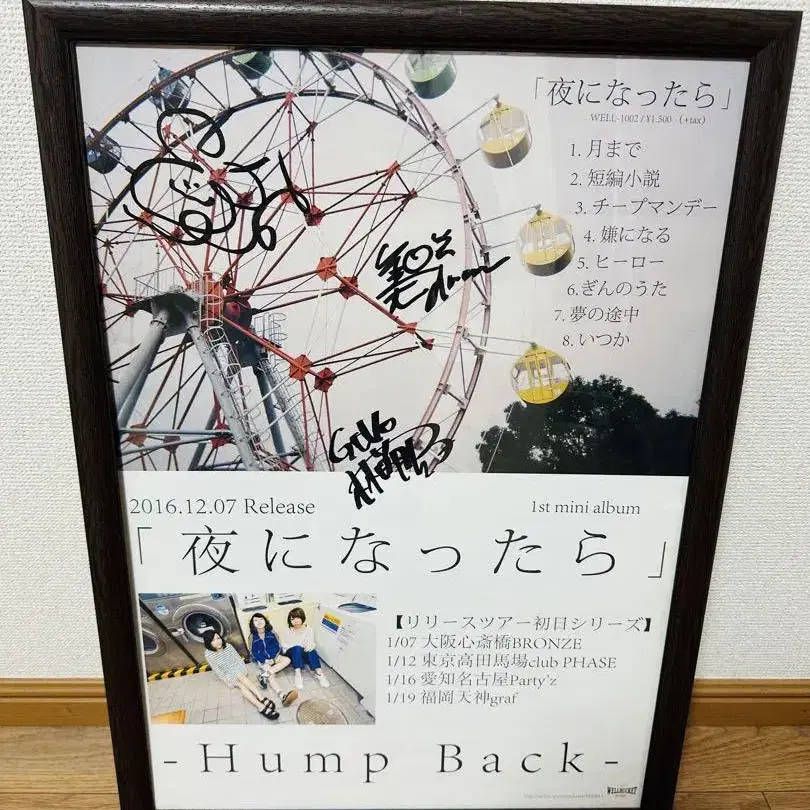 「夜になったら」
WELL-1002 / ¥1,500 (+tax)
1. 月まで
2. 短編小説
3. チープマンデー
4. 嫌になる
5. ヒーロー
6. ぎんのうた
7. 夢の途中
8. いつか
2016.12.07 Release
1st mini album
「夜になったら」
【リリースツアー初日シリーズ】
1/07 大阪心斎橋BRONZE
1/12 東京高田馬場club PHASE
1/16 愛知名古屋Party'z
1/19 福岡天神graf
- Hump Back -
WELLBUCKET